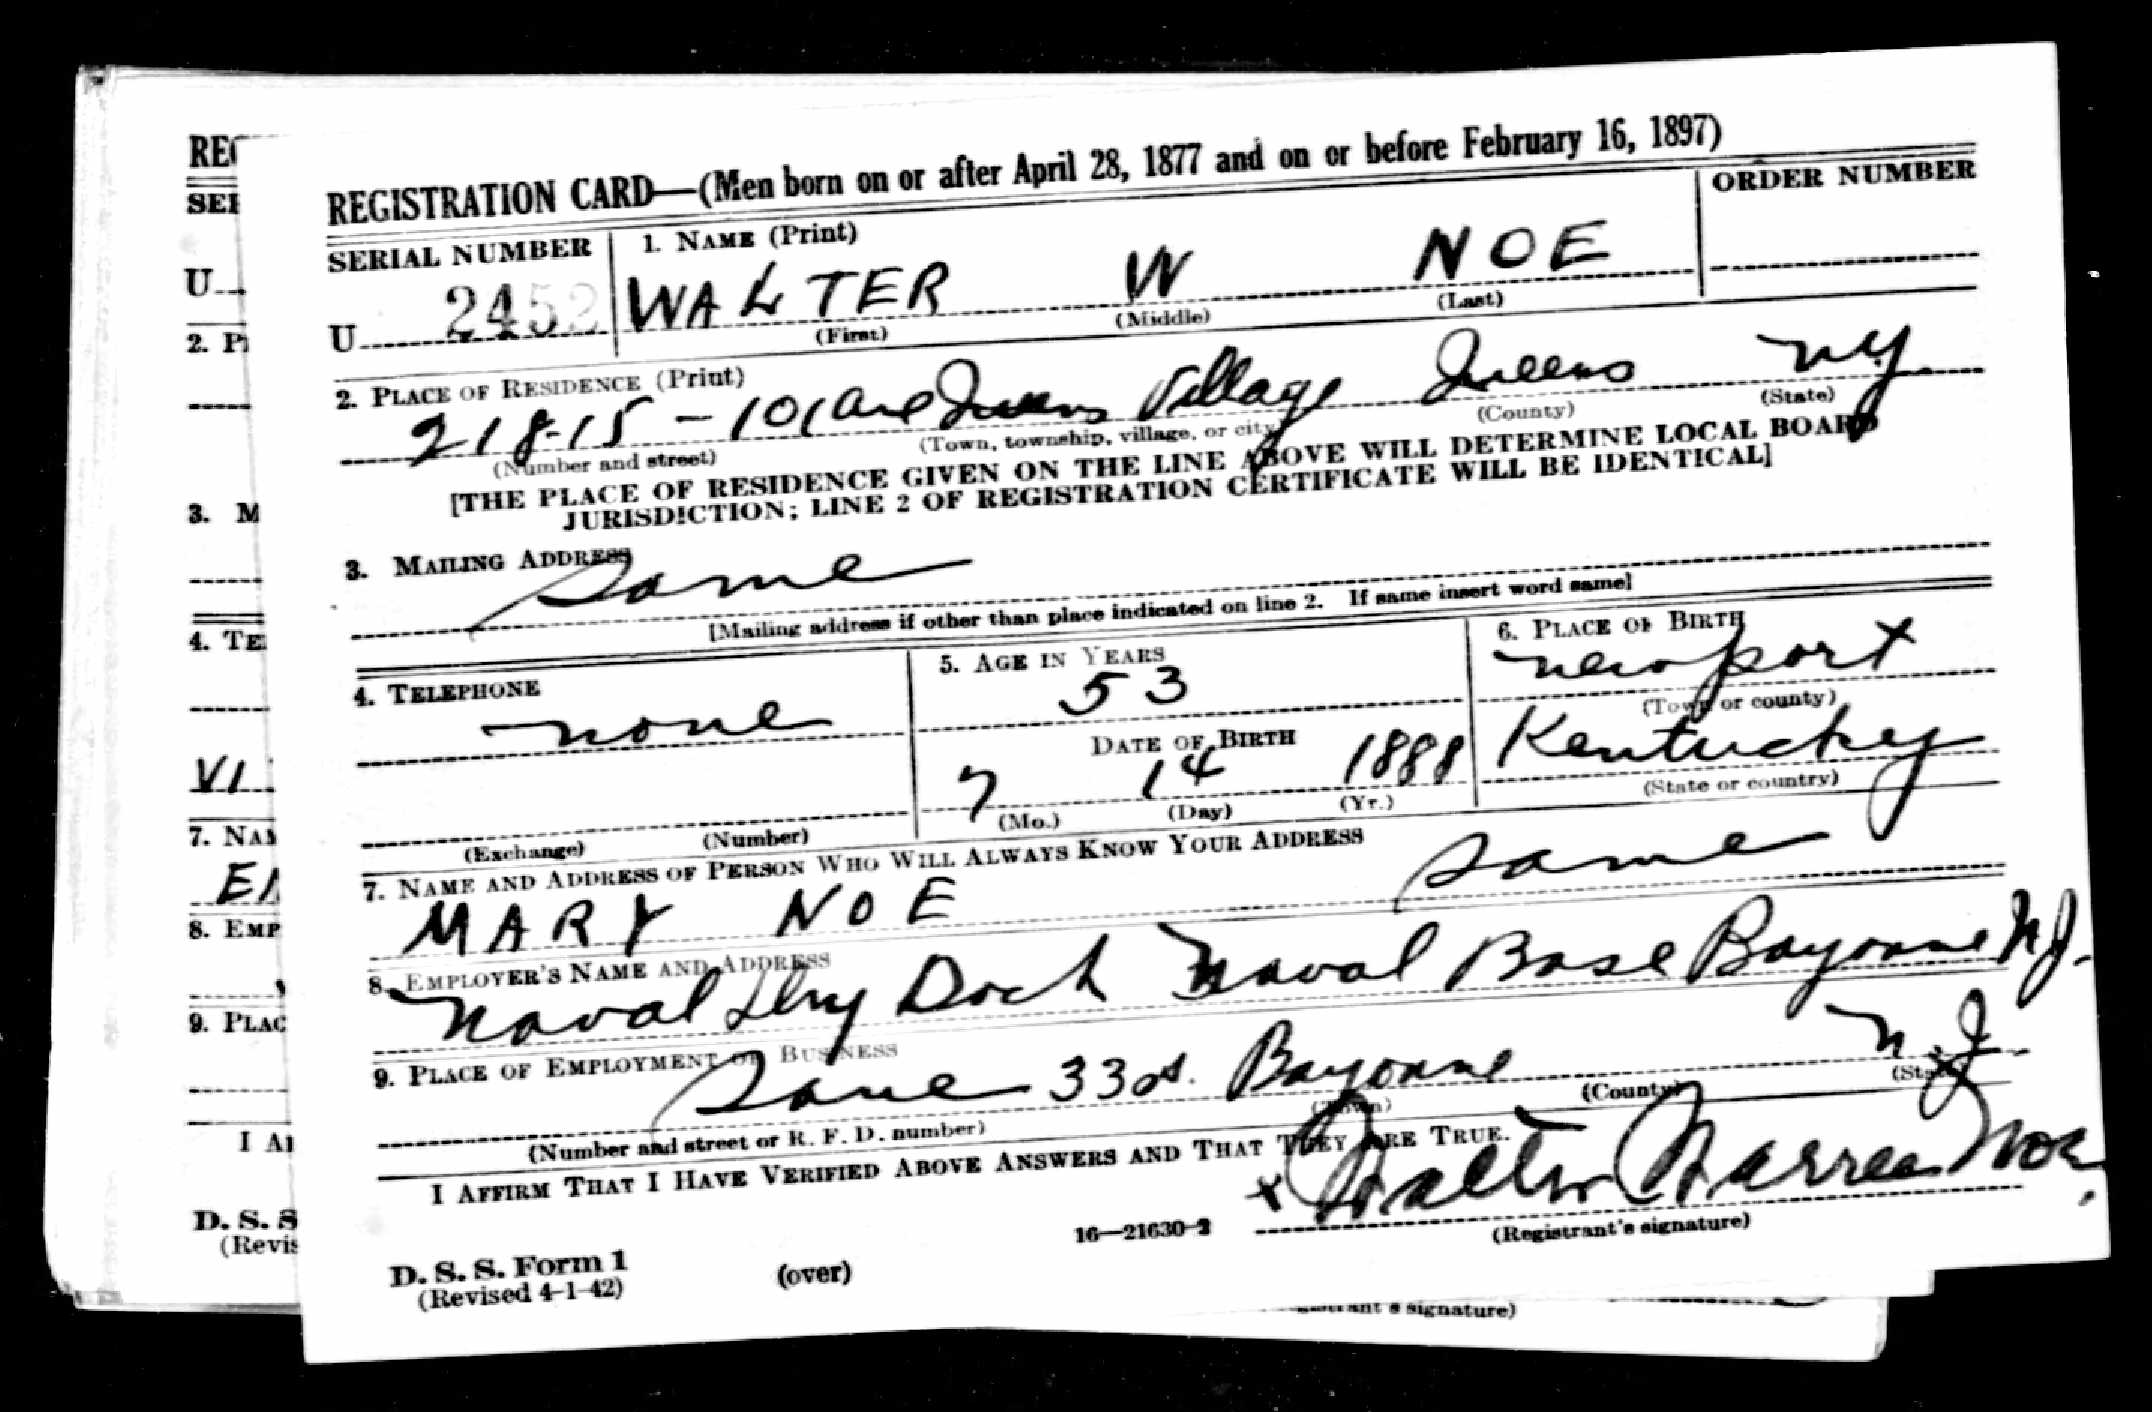 REGISTRATION CARD—(Men born on or after April 28, 1877 and on or before February 16, 1897)
SERIAL NUMBER
1. NAME (Print)
ORDER NUMBER
U 2452
WALTER W NOE
(First) (Middle) (Last)
2. PLACE OF RESIDENCE (Print)
218-15 - 101 Ave Queens Village Queens NY
(Number and street) (Town, township, village, or city) (County) (State)
[THE PLACE OF RESIDENCE GIVEN ON THE LINE ABOVE WILL DETERMINE LOCAL BOARD
JURISDICTION; LINE 2 OF REGISTRATION CERTIFICATE WILL BE IDENTICAL]
3. MAILING ADDRESS
Same
[Mailing address if other than place indicated on line 2. If same insert word same]
4. TELEPHONE
none
(Exchange) (Number)
5. AGE IN YEARS
53
DATE OF BIRTH
7 14 1888
(Mo.) (Day) (Yr.)
6. PLACE OF BIRTH
Newport
(Town or county)
Kentucky
(State or country)
7. NAME AND ADDRESS OF PERSON WHO WILL ALWAYS KNOW YOUR ADDRESS
MARY NOE Same
8. EMPLOYER'S NAME AND ADDRESS
Naval Dry Dock Naval Base Bayonne N.J.
9. PLACE OF EMPLOYMENT OR BUSINESS
Same 33 St. Bayonne N.J.
(Number and street or R. F. D. number) (Town) (County) (State)
I AFFIRM THAT I HAVE VERIFIED ABOVE ANSWERS AND THAT THEY ARE TRUE.
x Walter Warren Noe
(Registrant's signature)
D. S. S. Form 1
(Revised 4-1-42)
(over)
16—21630-2
REG
SER
U
2. Pl
3. M
4. TE
VI
7. NAM
8. EMP
9. PLAC
I AF
D. S. S
(Revis
signature)